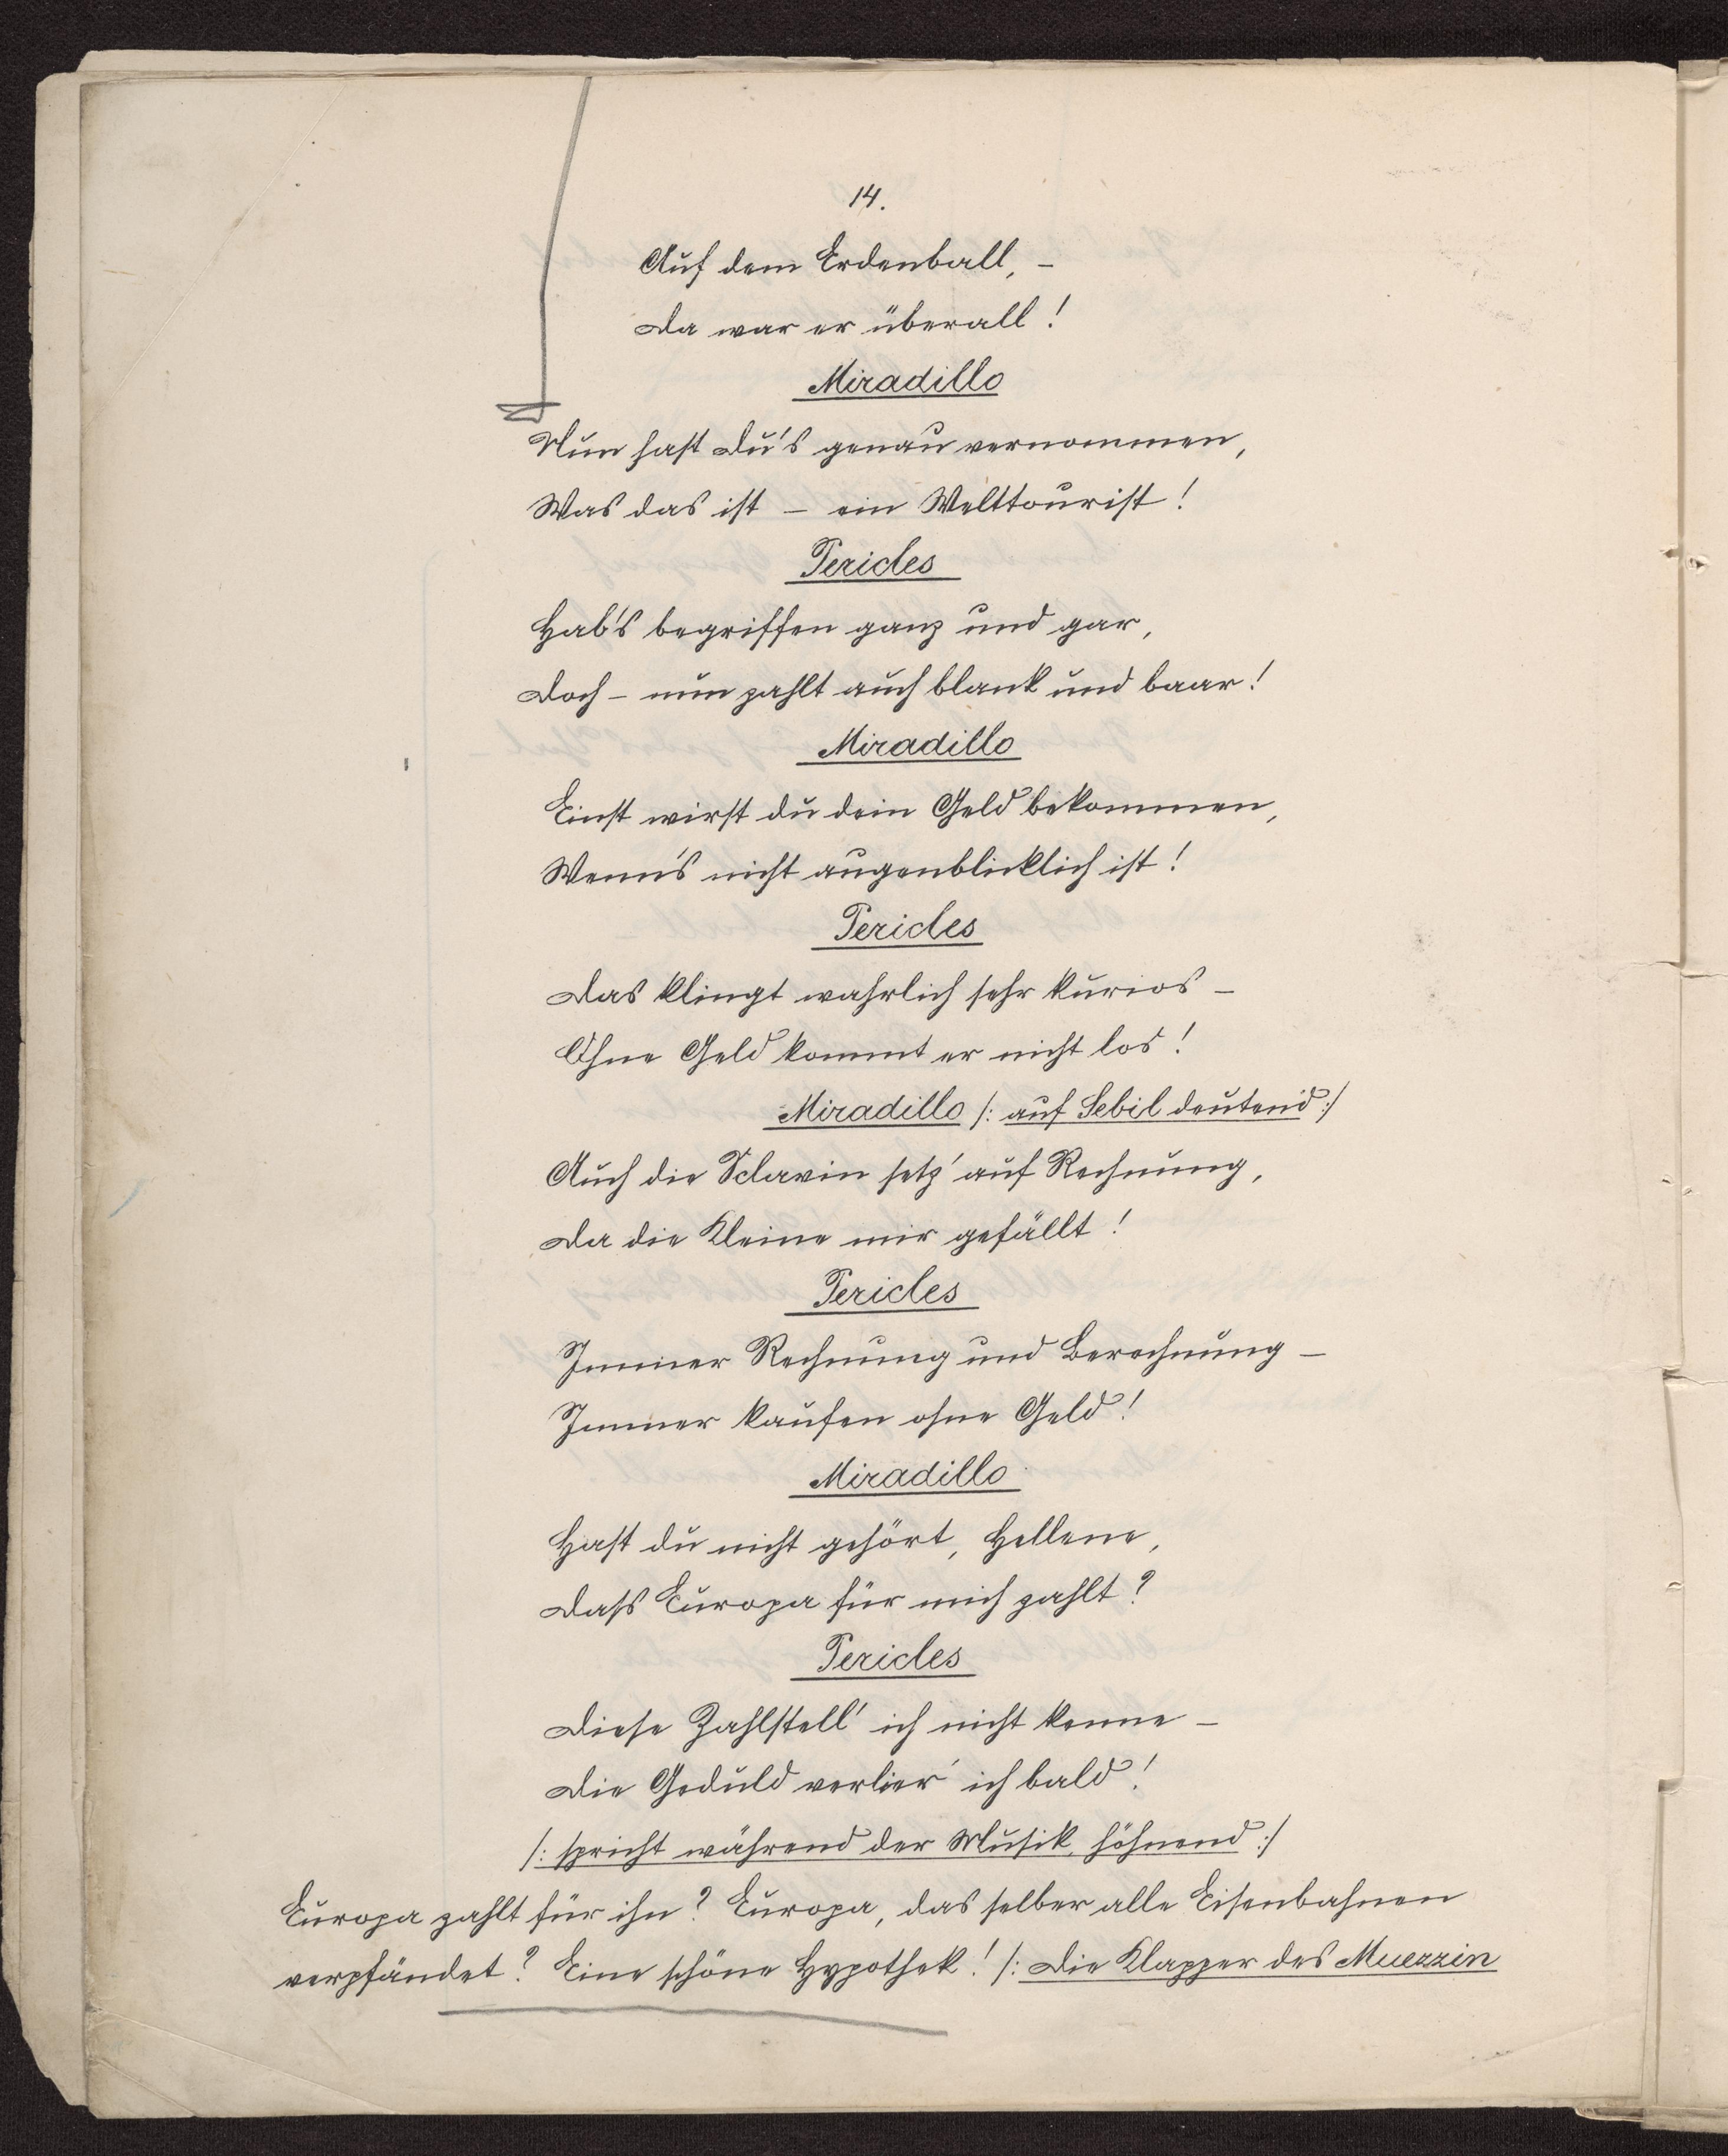 14.
Auf dem Erdenball, –
Da war er überall!
Miradillo
Nun hast du's genau vernommen,
Was das ist – ein Welttourist!
Pericles
Hab's begriffen ganz und gar,
Doch – nun zahlt auch blank und baar!
Miradillo
Einst wirst du dein Geld bekommen,
Wenn's nicht augenblicklich ist!
Pericles
Das klingt wahrlich sehr kurios –
Ohne Geld kommt er nicht los!
Miradillo /: auf Sebil deutend :/
Auch die Sclavin setz' auf Rechnung,
Da die Kleine mir gefällt!
Pericles
Immer Rechnung und Berechnung –
Immer kaufen ohne Geld!
Miradillo
Hast du nicht gehört, Hellene,
Dass Europa für mich zahlt?
Pericles
Diese Zahlstell' ich nicht kenne –
Die Geduld verlier' ich bald!
/: spricht während der Musik, höhnend :/
Europa zahlt für ihn? Europa, das selber alle Eisenbahnen
verpfändet? Eine schöne Hypothek! /: Die Klapper des Muezzin